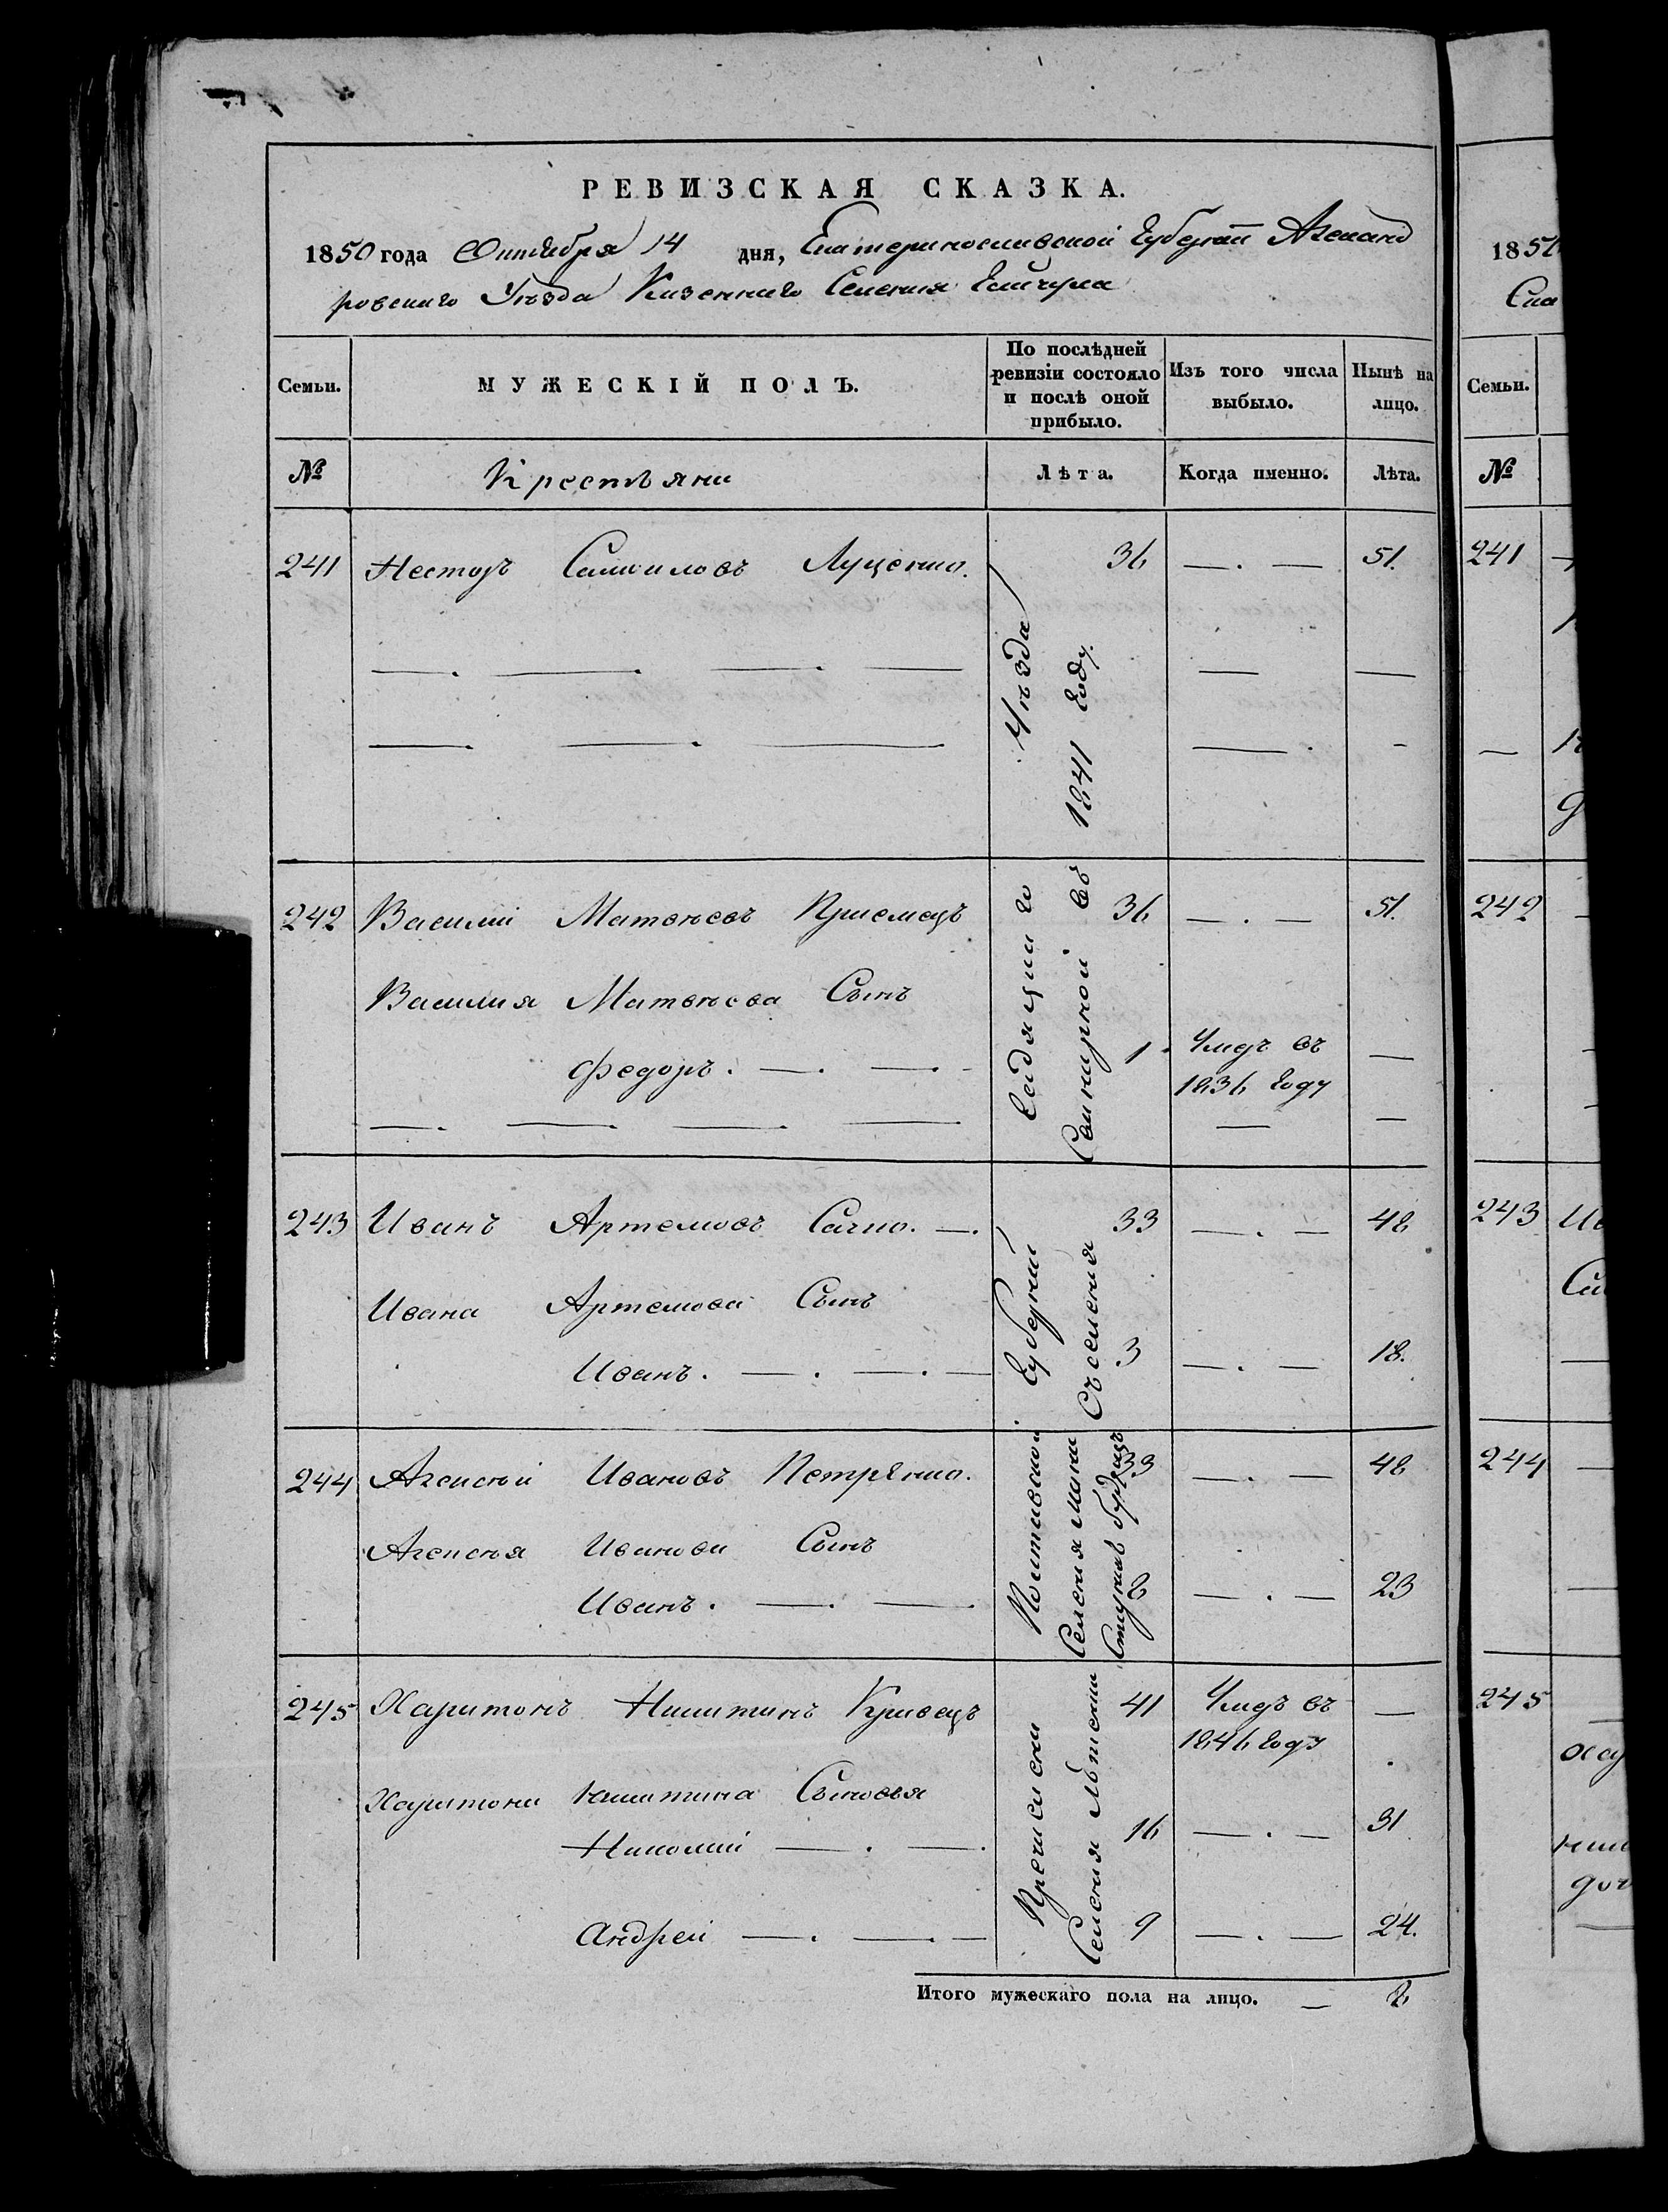 РЕВИЗСКАЯ СКАЗКА.
1850 года Октября 14 дня, Екатеринославской Губернии Александ
ровскаго Уѣзда Казеннаго Селения
Семьи.
МУЖЕСКІЙ ПОЛЪ.
По послѣдней ревизіи состояло и послѣ оной прибыло.
Изъ того числа выбыло.
Нынѣ на лицо.
№
Крестьяни
Лѣта.
Когда именно.
Лѣта.
241 Несторъ Самойловъ Луценко. 36 —.— 51.
242 Василий Матвѣевъ Приемецъ 36 —.— 51.
Василия Матвѣева Сынъ
Федоръ. —. —. 1 Умеръ въ —
1836 году
243 Иванъ Артемовъ Сачко. —. 33 —.— 48
Ивана Артемова Сынъ
Иванъ. —. —. — 3 —.— 18.
244 Алексѣй Ивановъ Петренко. 33 —.— 48
Алексѣя Иванова Сынъ
Иванъ. —. — 8 —.— 23
245 Харитонъ Никитинъ Кривецъ 41 Умеръ въ —
1846 году
Харитона Никитина Сыновья
Николай —. —. 16 —.— 31
Андрей —. —. — 9 —.— 24.
Причислены Полтавской Губернии Гадяцкаго Уѣзда
Селения Съ селения въ 1841 году.
Итого мужескаго пола на лицо. — 8
1850
Семьи.
№
241
242
243
244
245